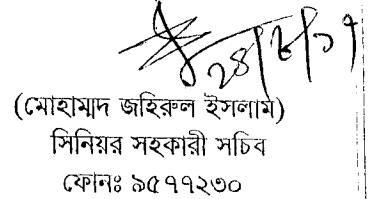 ২৪/৮/১৭
(মোহাম্মদ জহিরুল ইসলাম)
সিনিয়র সহকারী সচিব
ফোনঃ ৯৫৭৭২৩০